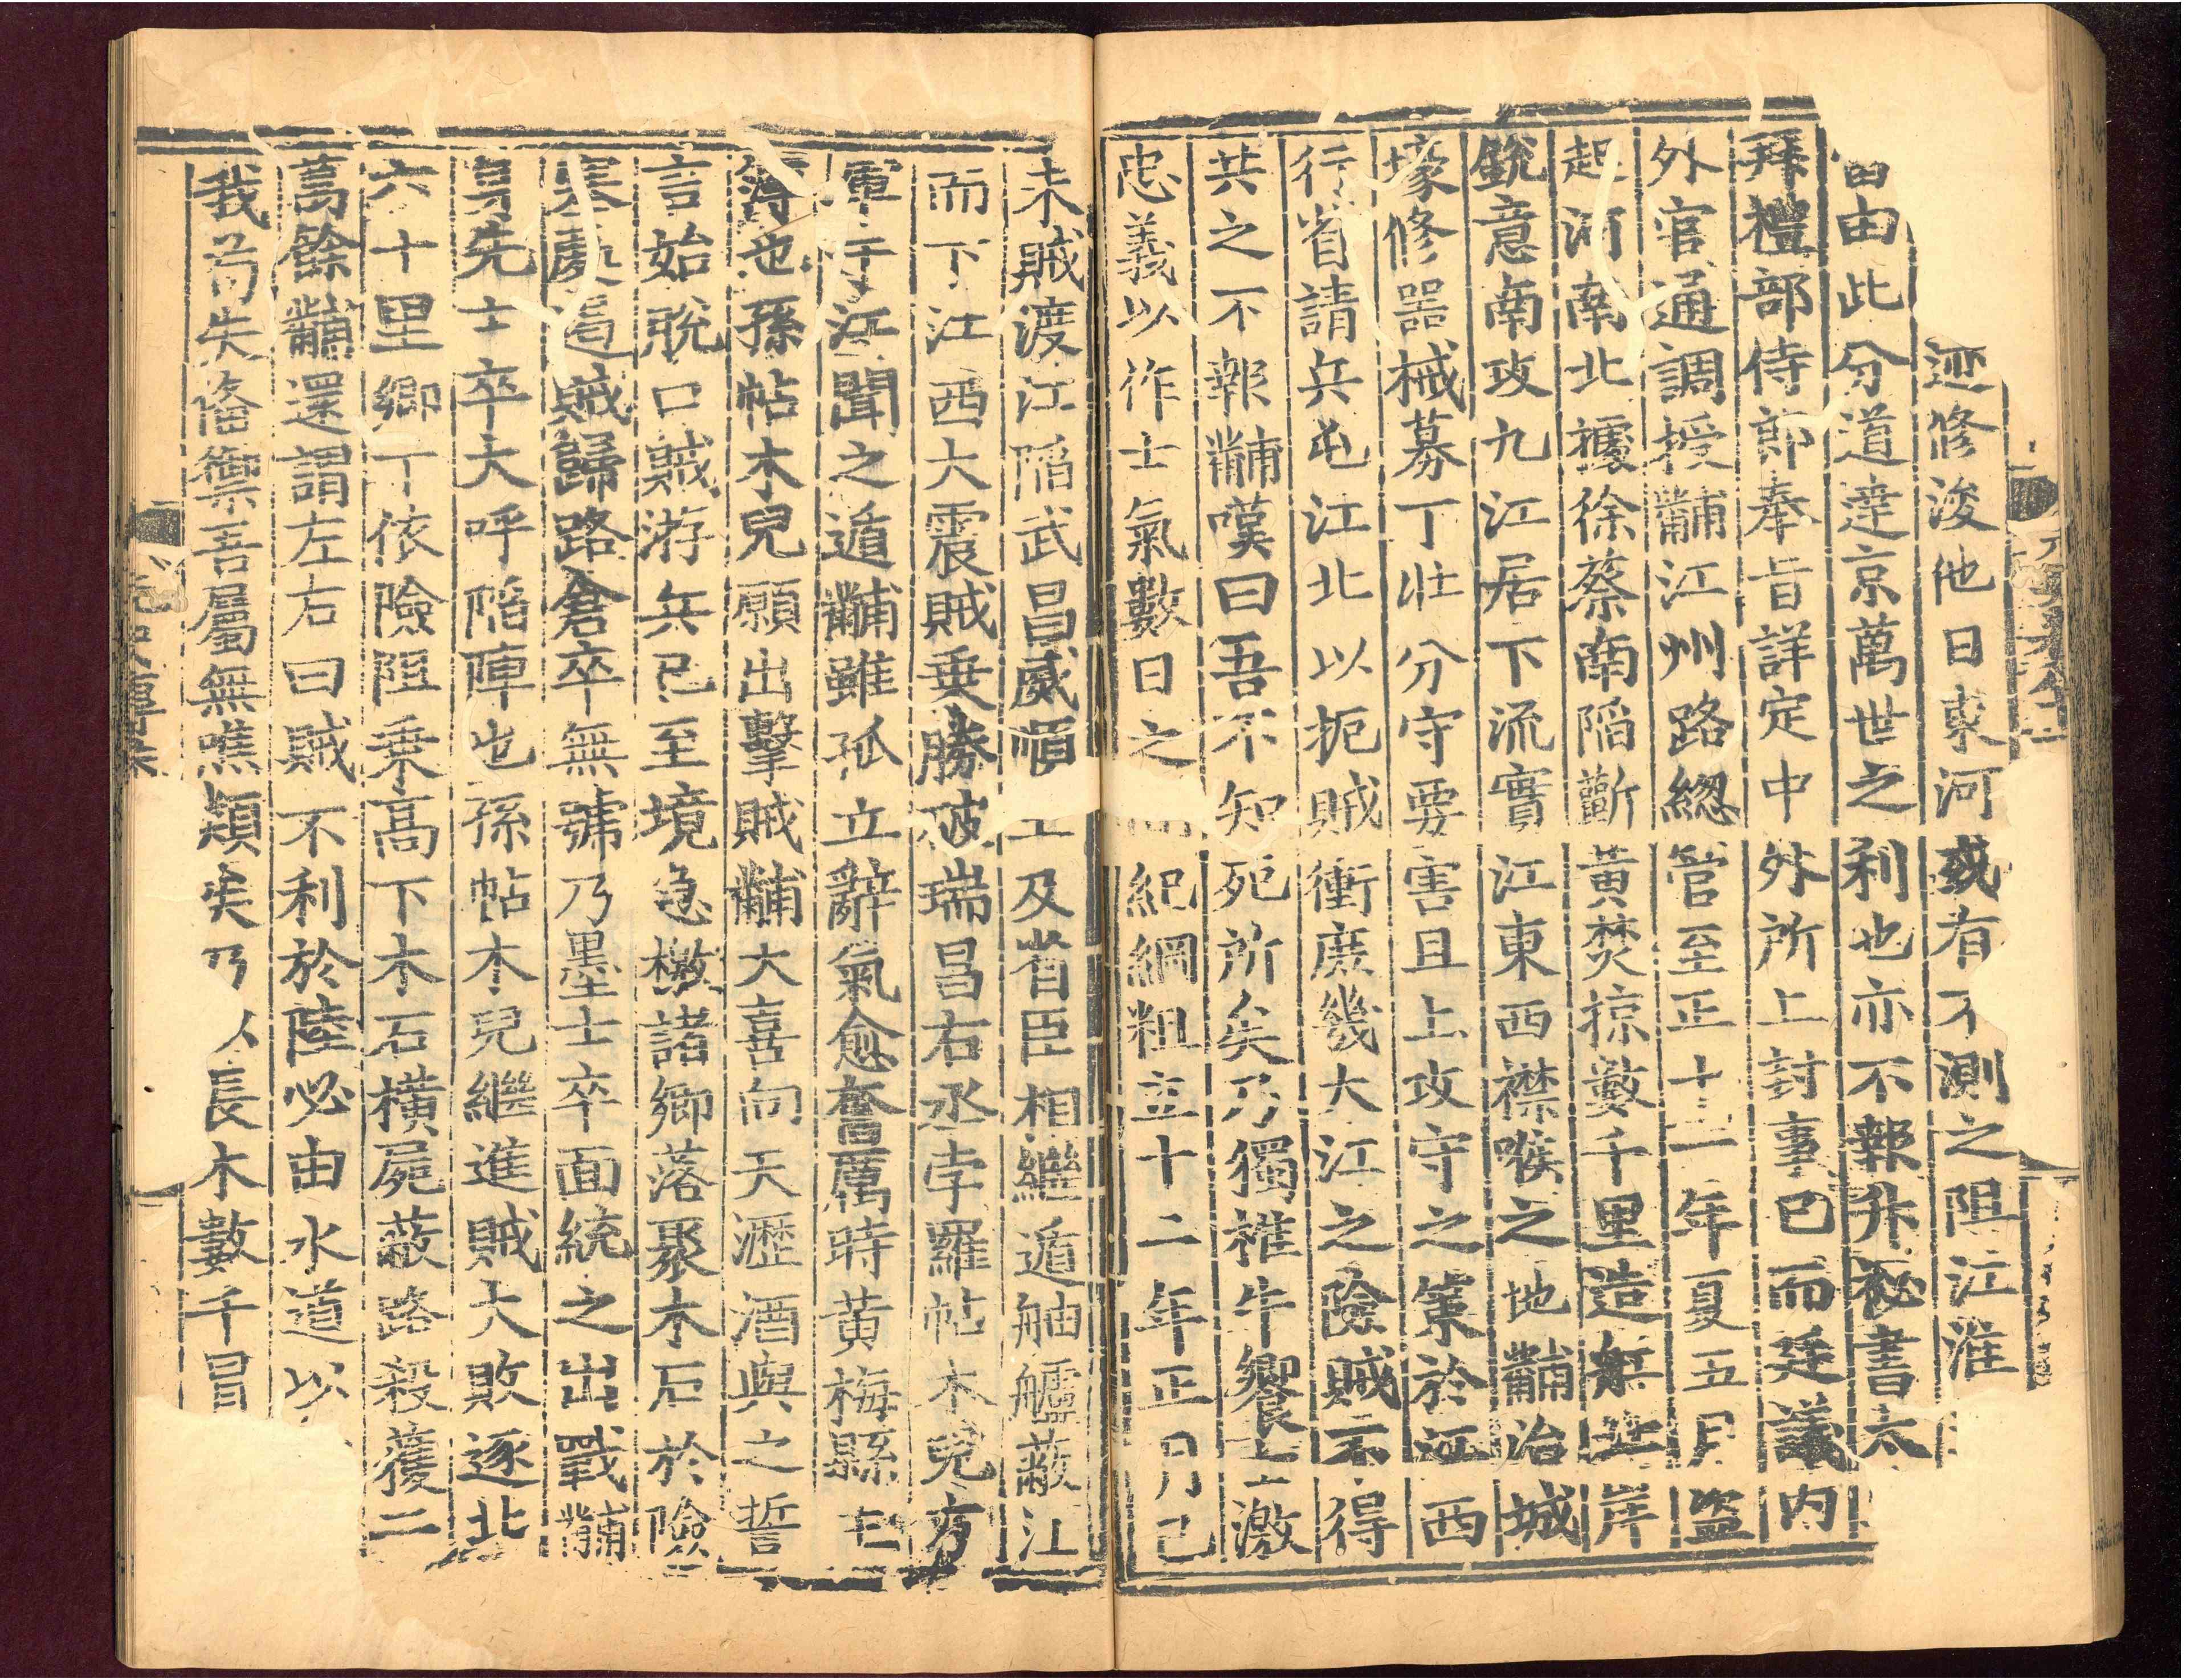 迹修浚他日東河或有不測之阻江淮
由此分道達京萬世之利也亦不報升祕書太
拜禮部侍郎奉旨詳定中外所上封事已而廷議内
外官通調授黼江州路總管至正十一年夏五月盗
起河南北據徐蔡南陷蘄黄焚掠數千里造船北岸
銳意南攻九江居下流實江東西襟喉之地黼治城
壕修器械募丁壮分守要害且上攻守之策於江西
行省請兵屯江北以扼賊衝庶幾大江之險賊不得
共之不報黼嘆曰吾不知死所矣乃獨椎牛饗士激
忠義以作士氣數日之紀綱粗立十二年正月己
未賊渡江陷武昌威順王及省臣相繼遁舳艫蔽江
而下江西大震賊乗勝破瑞昌右丞孛羅帖木兒方
軍于江聞之遁黼雖孤立辭氣愈奮厲時黄梅縣主
簿也孫帖木兒願出擊賊黼大喜向天瀝酒與之誓
言始脱口賊游兵已至境急檄諸鄉落聚木石於險
塞處遏賊歸路倉卒無號乃墨士卒面統之出戰黼
身先士卒大呼陷陣也孫帖木兒繼進賊大敗逐北
六十里鄉丁依險阻乗高下木石横屍蔽路殺獲二
萬餘黼還謂左右曰賊不利於陸必由水道以
我苟失僃禦吾屬無噍類矣乃以長木數千冒